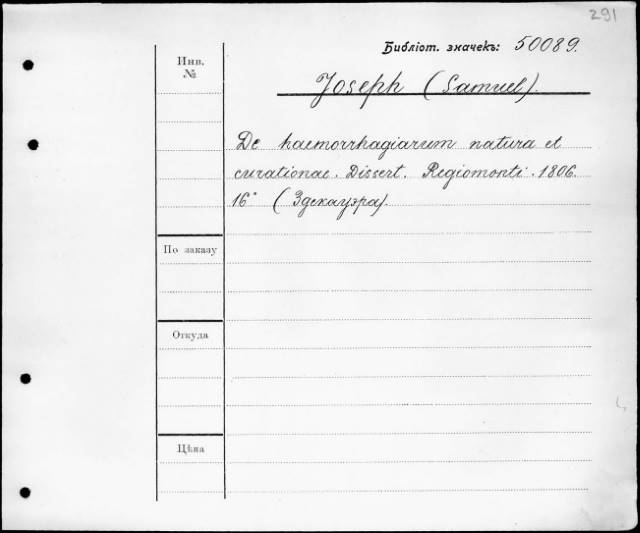 291
Библіот. значекъ: 50089.
Инв.
№
Joseph (Samuel).
De haemorrhagiarum natura et
curationae. Dissert. Regiomonti. 1806.
16° (Здекауэра).
По заказу
Откуда
Цѣна